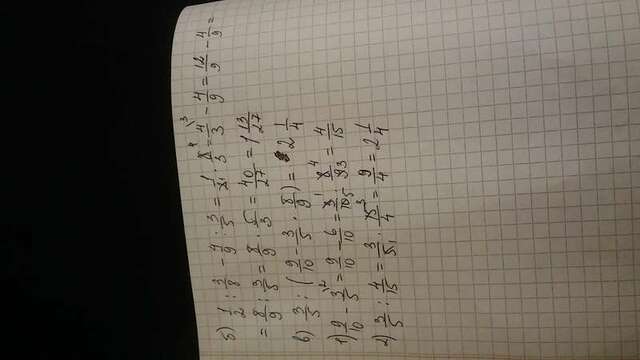 б) 1/2 : 3/8 - 4/9 : 3/5 = 1/2 · 8/3 = 4/3 - 4/9 = 12/9 - 4/9 =
= 8/9 : 3/5 = 8/9 · 5/3 = 40/27 = 1 13/27
в) 3/5 : (9/10 - 3/5 · 8/9) = 2 1/4
1) 9/10 - 3/5 = 9/10 - 6/10 = 3/10 · 8/9 = 4/15
2) 3/5 : 4/15 = 3/5 · 15/4 = 9/4 = 2 1/4